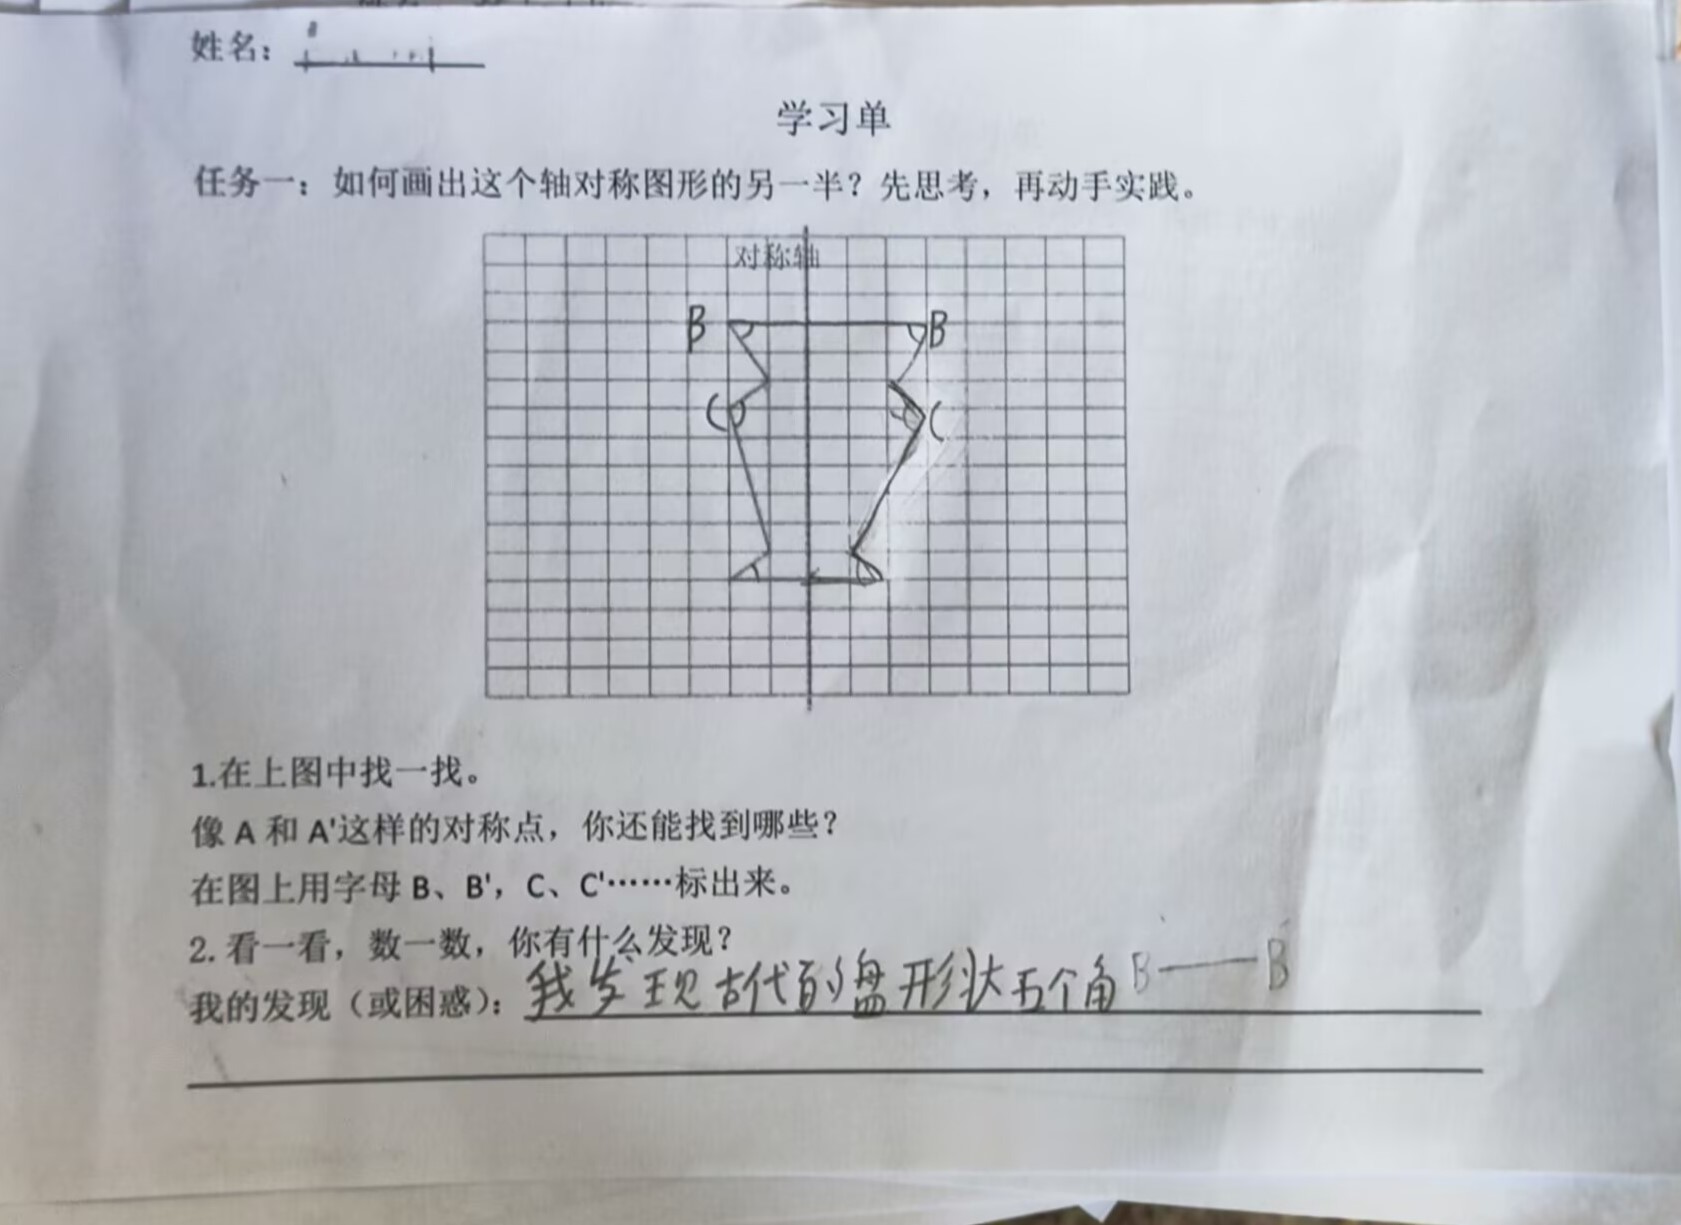 姓名：
学习单
任务一：如何画出这个轴对称图形的另一半？先思考，再动手实践。
对称轴
B B
C C
1.在上图中找一找。
像 A 和 A'这样的对称点，你还能找到哪些？
在图上用字母 B、B'，C、C'……标出来。
2. 看一看，数一数，你有什么发现？
我的发现（或困惑）：我发现古代的盘形状五个角B——B